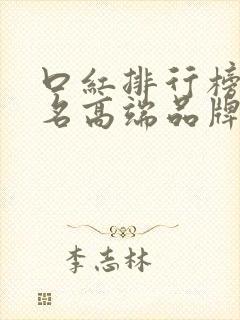 口红排行榜
名高端品牌
李志林